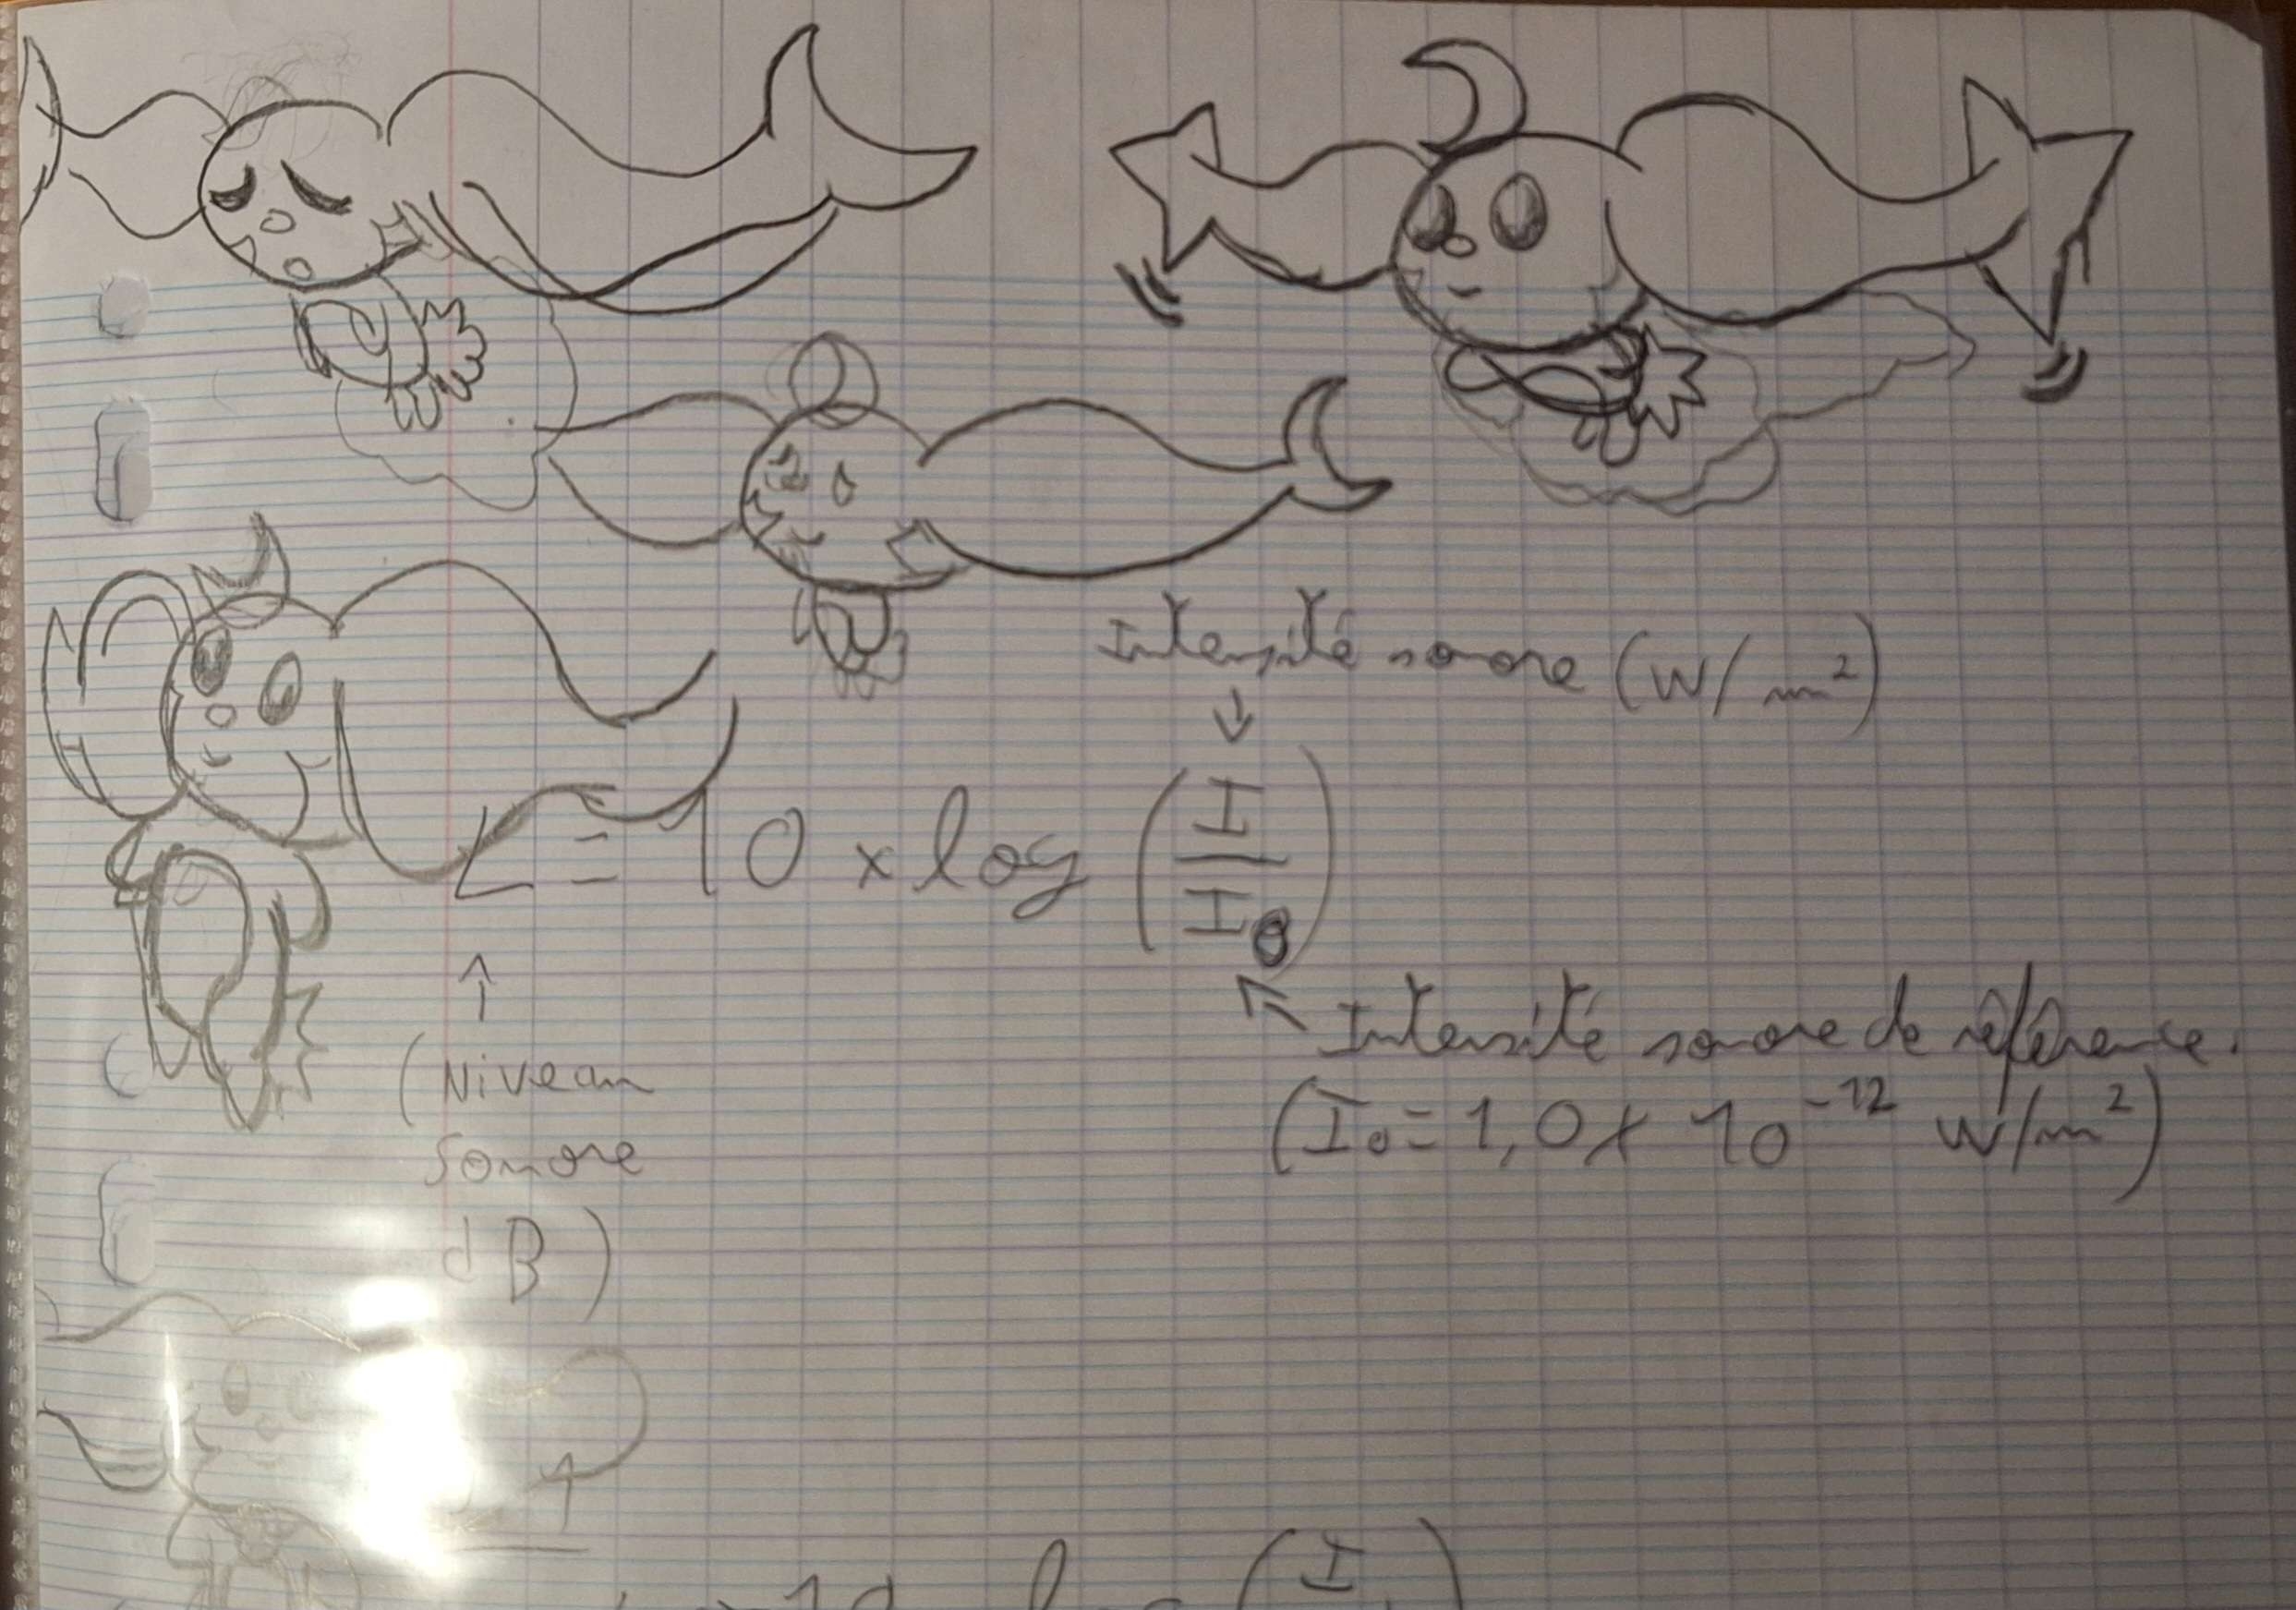 Intensité sonore (W/m²)
↓
L = 10 x log (I/I₀)
↑
(Niveau
Sonore
dB)
↖ Intensité sonore de référence.
(I₀ = 1,0 x 10⁻¹² W/m²)